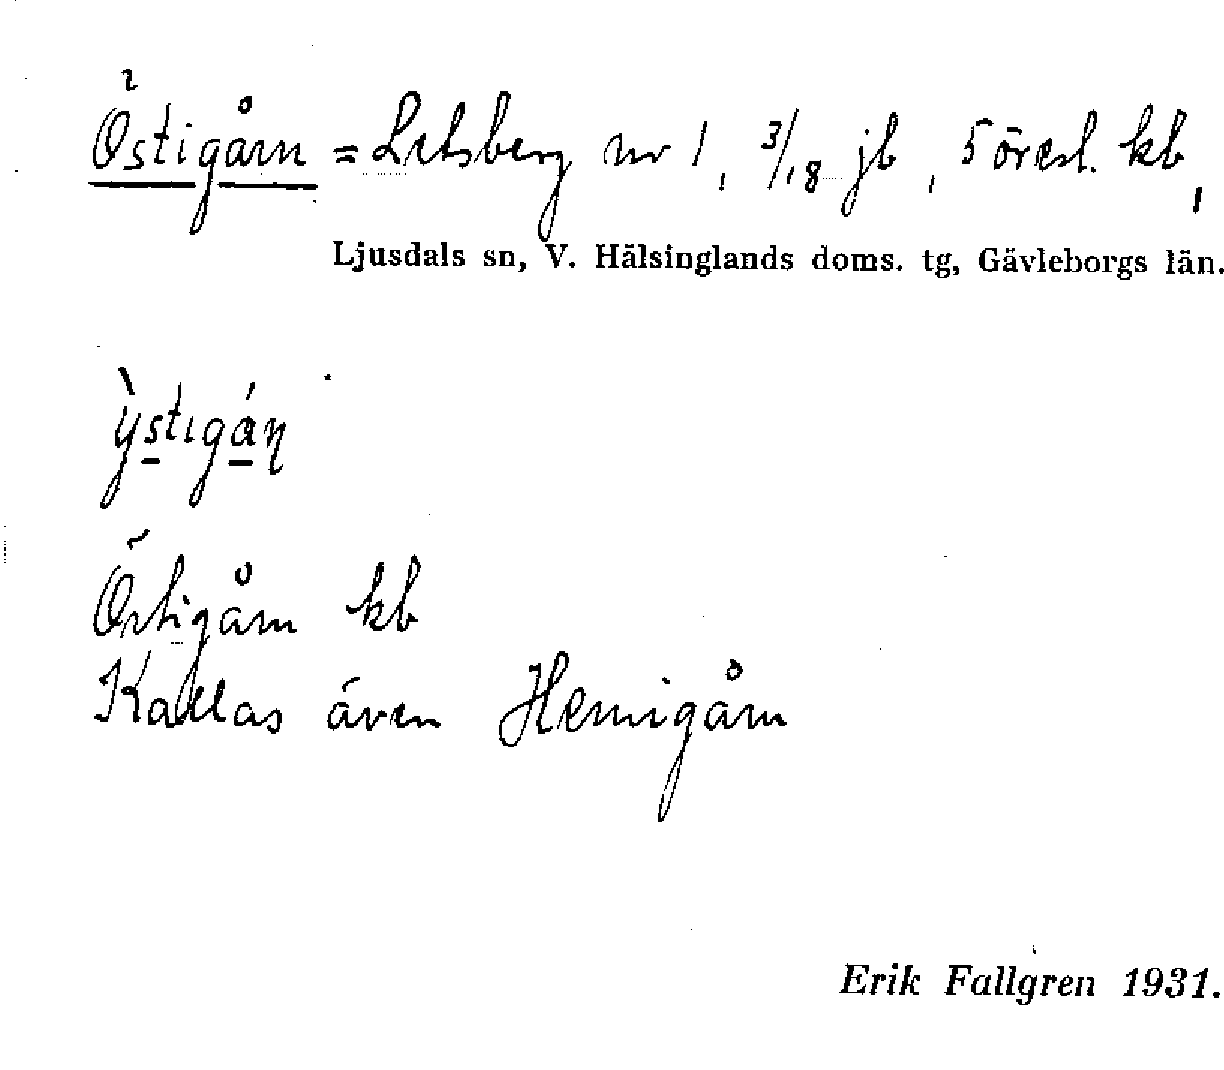 Östigårn = Letsberg nr 1, 3/18 jb, 5 öresl. kb,
Ljusdals sn, V. Hälsinglands doms. tg, Gävleborgs län.
ỳstıgáṇ
Östigårn kb
Kallas även Hemigårn
Erik Fallgren 1931.